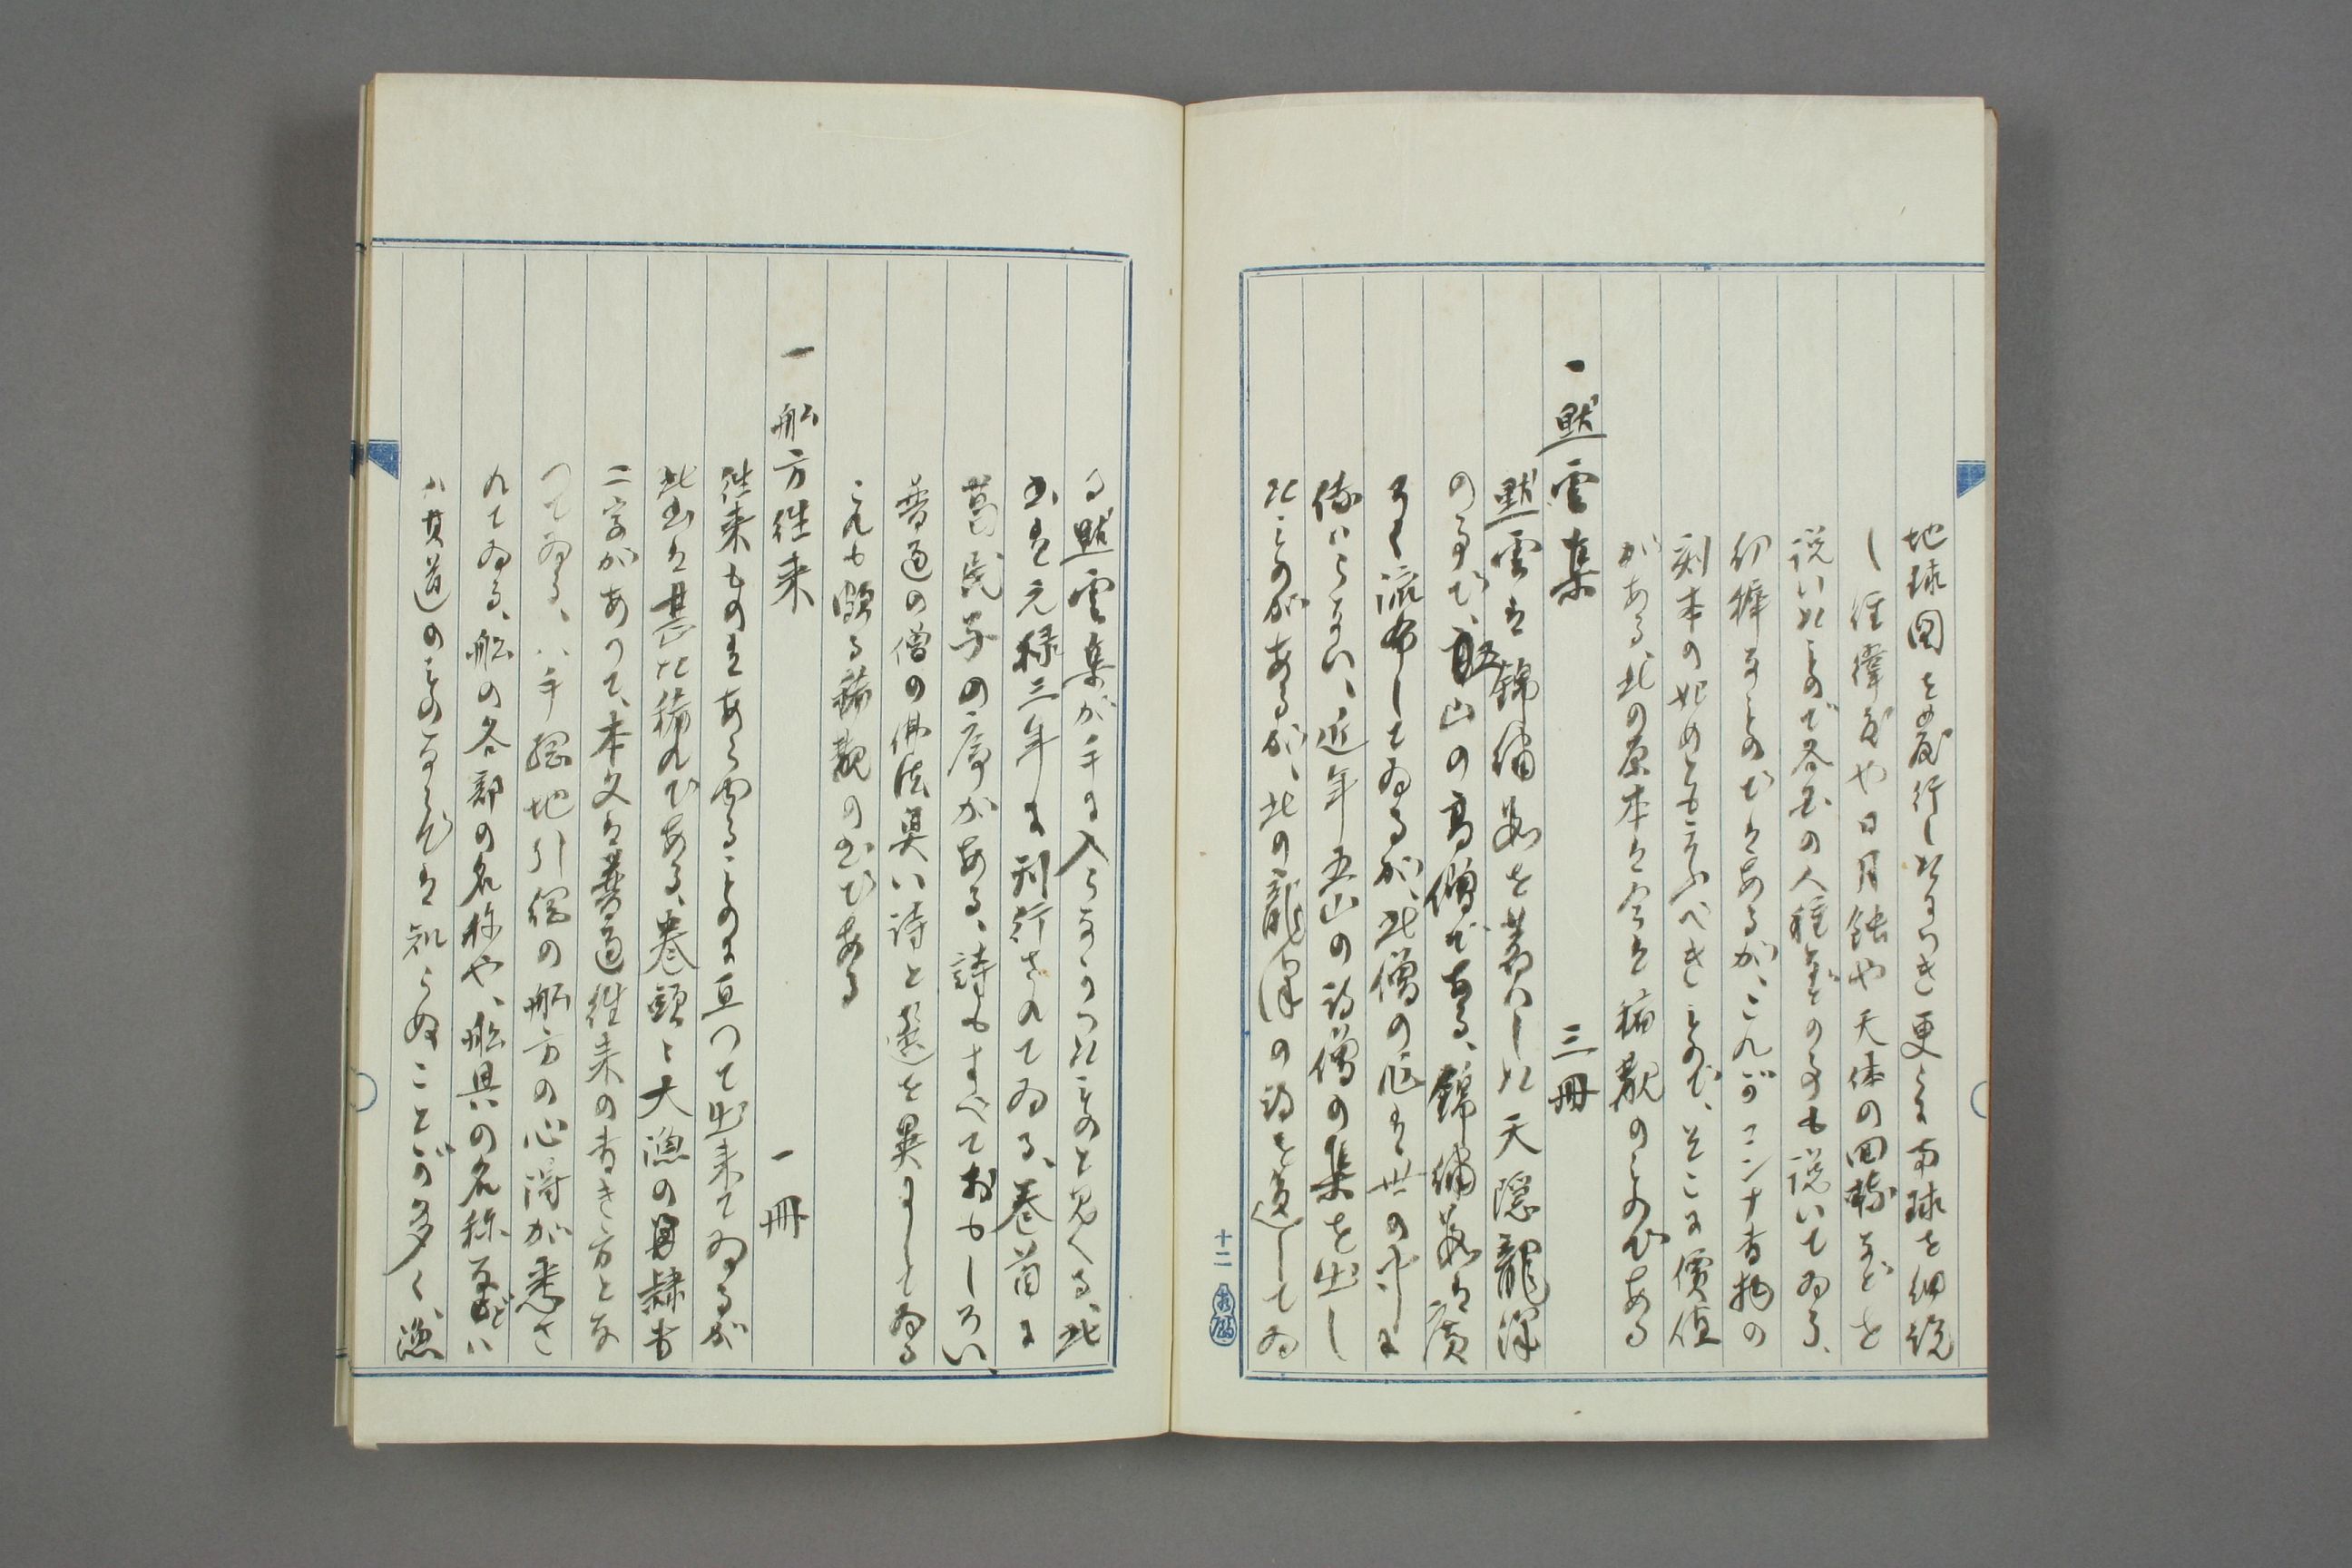 地球図を発行したにつき更らに南球を細説
し経緯度や日月蝕や天体の回転などを
説いたもので各国の人種などの事も説いてゐる、
初稚なものではあるが、これがコンナ書物の
刻本の始めともいふべきもので、そこに價值
がある、此の原本は今は稀覯のものである
一 黙雲集 三冊
黙雲は錦繡段を著ハした天隠龍澤
の事で、五山の高僧である、錦繡段は廣
く流布してゐるが、此僧の作は世の中に
傳ハらない、近年五山の詩僧の集を出し
たものがあるが、此の龍澤の詩を逸してゐ
る黙雲集が手に入らなかつたものと見へる、此
書は元禄三年に刊行されてゐる、巻首に
葛民子の序がある、詩もすべておもしろい、
普通の僧の佛法臭い詩と選を異にしてゐる
これも頗る稀覯の書である
一 船方往来 一冊
往来ものはあらゆることに亘つて出来てゐるが
此書は甚だ稀れである、巻頭に大漁の具隷書
二字があつて、本文は普通往来の書き方とな
つてゐる、八手網地引網の船方の心得が悉さ
れてゐる、船の各部の名称や、船具の名称などハ
其道のものならでは知らぬことが多く、漁
十二